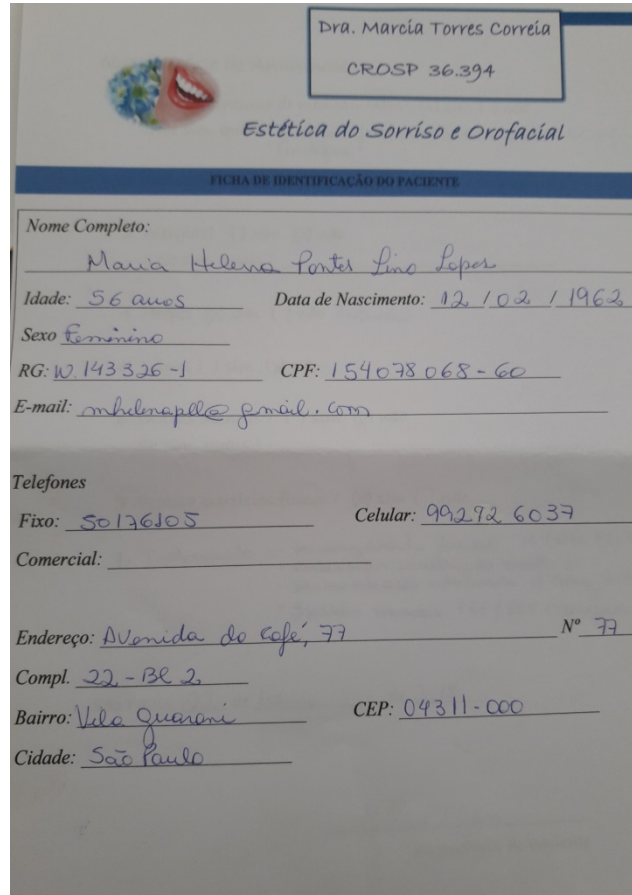 Dra. Marcia Torres Correia
CROSP 36.394
Estética do Sorriso e Orofacial
FICHA DE IDENTIFICAÇÃO DO PACIENTE
Nome Completo:
Maria Helena Pontes Lino Lopes
Idade: 56 anos Data de Nascimento: 12 / 02 / 1962
Sexo Feminino
RG: W.143326-J CPF: 154078068-60
E-mail: mhelenapll@gmail.com
Telefones
Fixo: 50176105 Celular: 992726037
Comercial:
Endereço: Avenida do Café, 77 Nº 77
Compl. 22 - Bl 2
Bairro: Vila Guarani CEP: 04311-000
Cidade: São Paulo